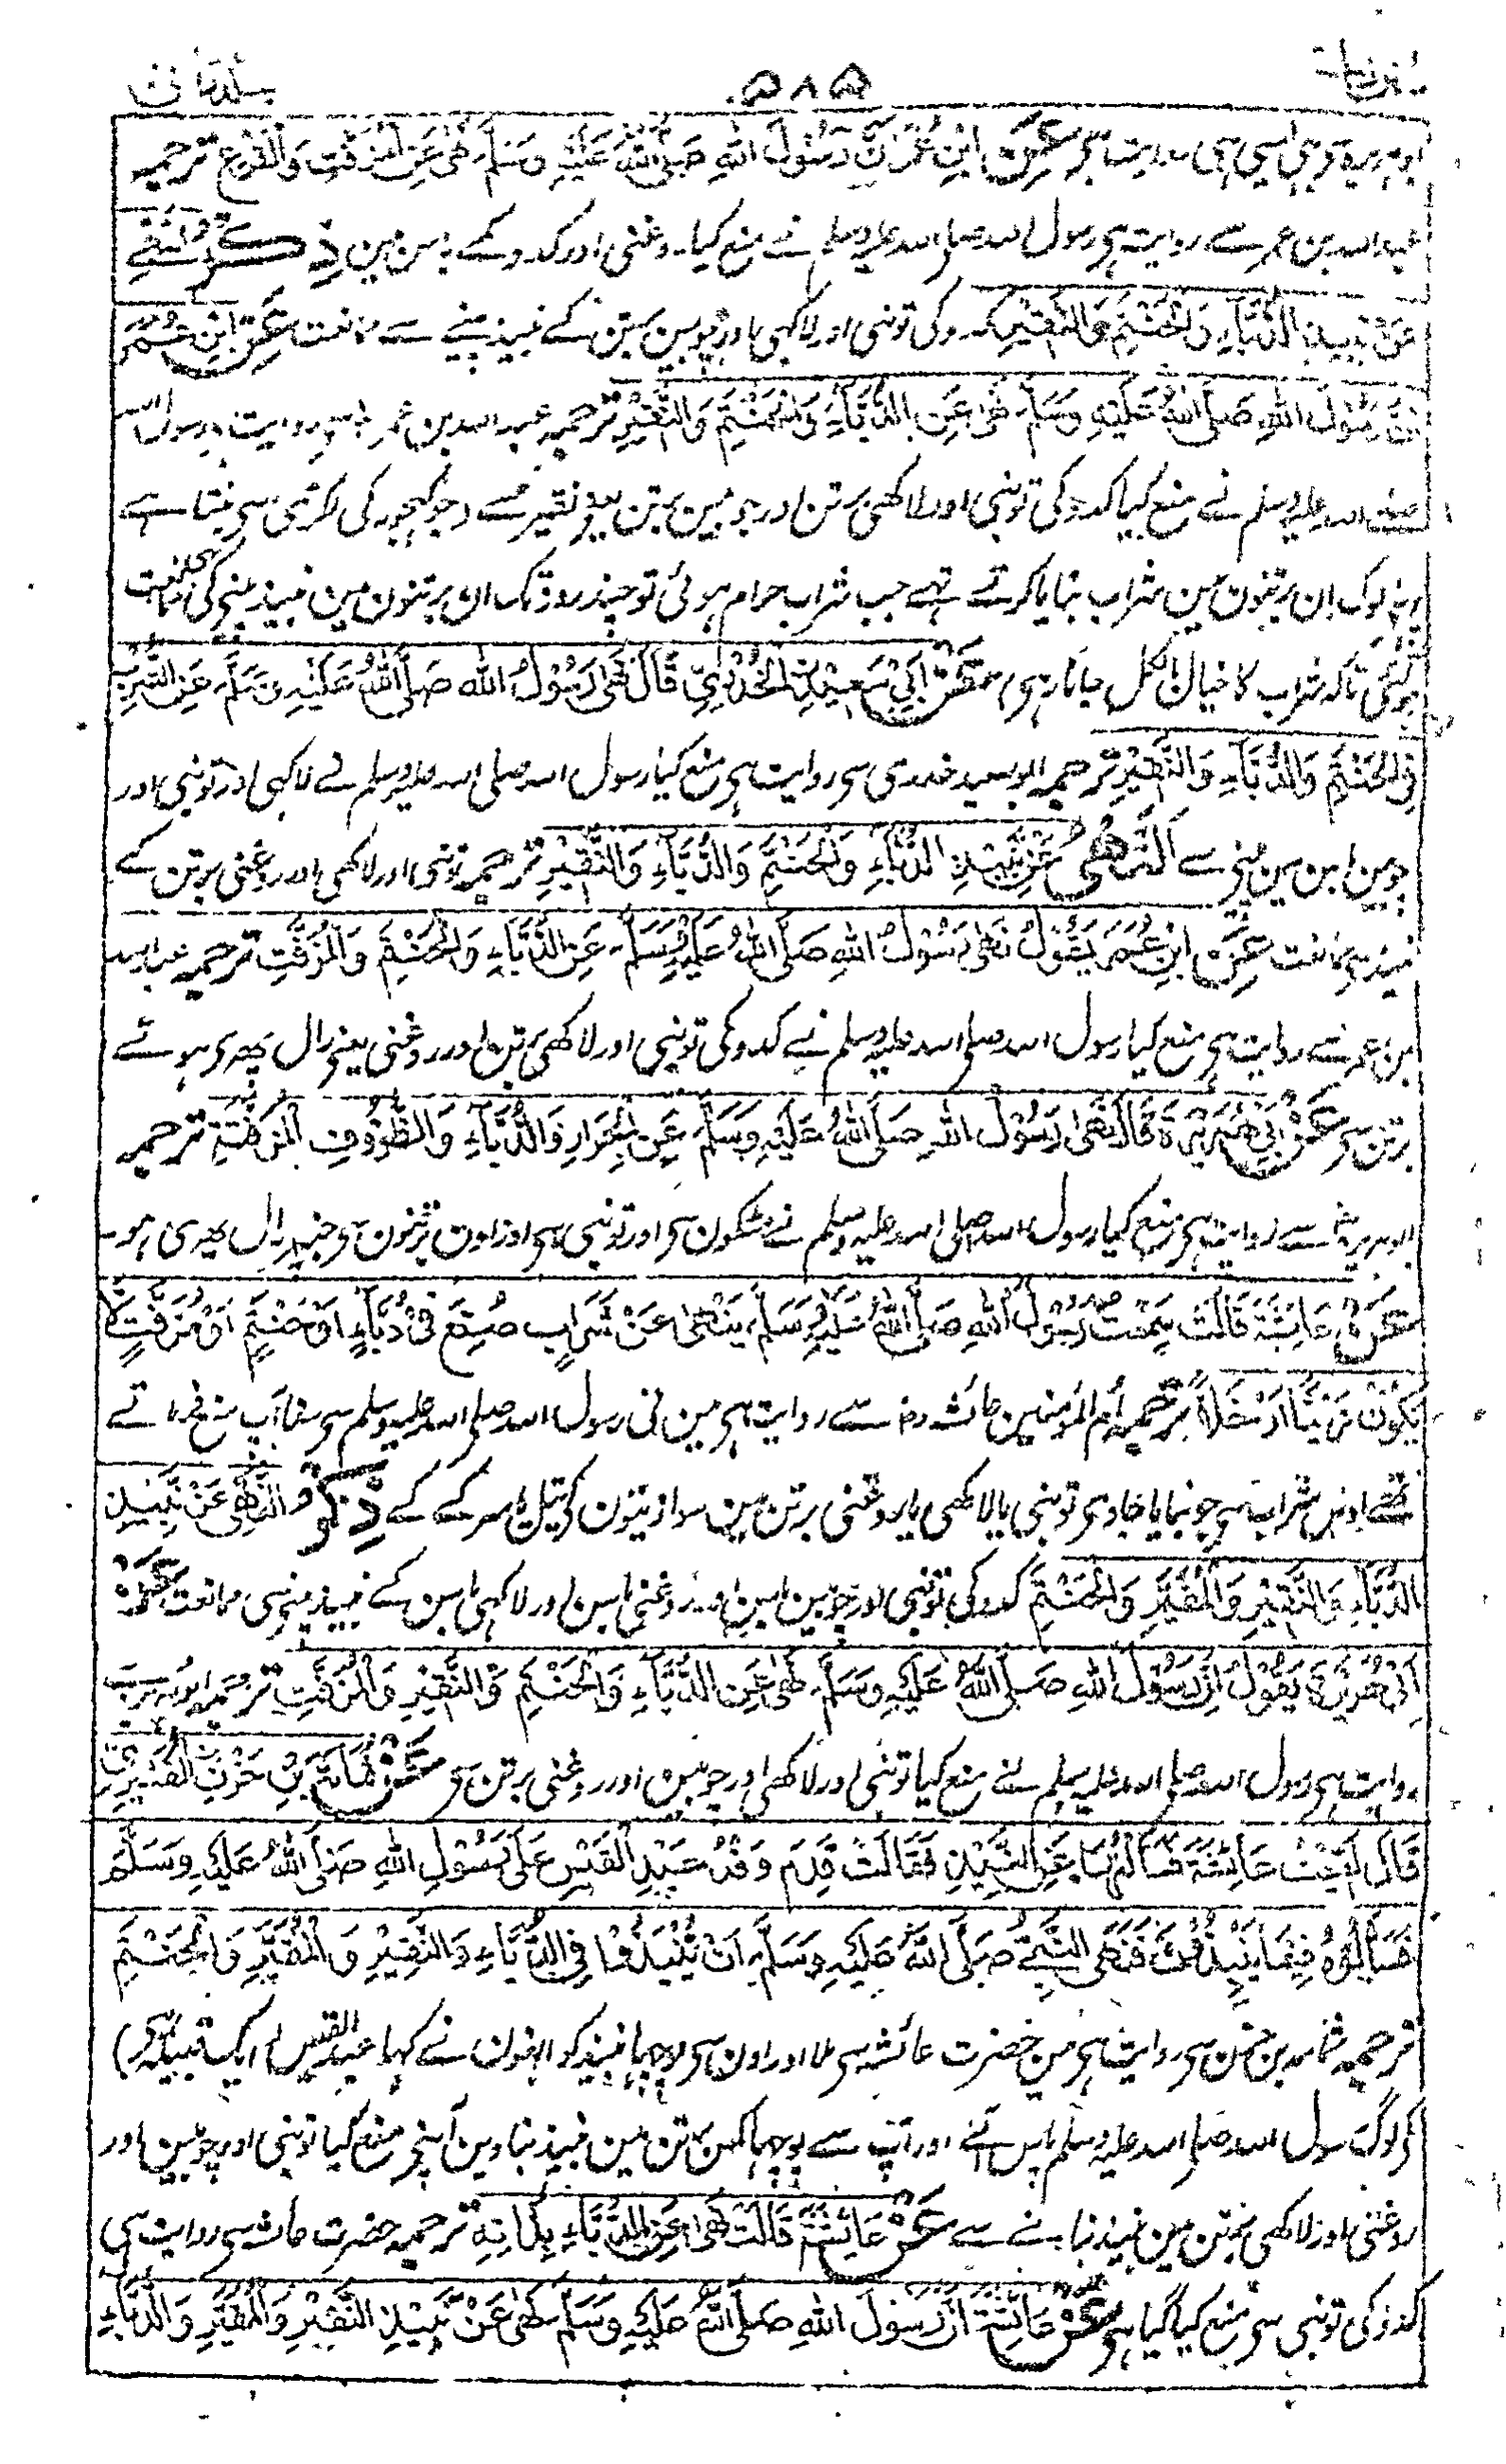 ۵۸۵
عَنِ ابْنِ عُمَرَ اَنَّ رَسُوْلَ اللهِ صَلَّى اللهُ عَلَيْهِ وَسَلَّمَ نَهٰى عَنِ الْمُزَفَّتِ وَالْقَرْعِ ترجمہ
عبد اللہ بن عمر سے روایت ہی رسول اللہ صلی اللہ علیہ وسلم نے منع کیا روغنی اور کدو کے باسن مین ذِكْرُ النَّهْيِ
عَنْ نَبِيْذِ الدُّبَّاءِ وَالْحَنْتَمِ وَالنَّقِيْرِ کدو کی تونبی اور لاکھی اور چوبین برتن کے نبیذ پینے سے ممانعت عَنِ ابْنِ عُمَرَ
اَنَّ رَسُوْلَ اللهِ صَلَّى اللهُ عَلَيْهِ وَسَلَّمَ نَهٰى عَنِ الدُّبَّاءِ وَالْحَنْتَمِ وَالنَّقِيْرِ ترجمہ عبد اللہ بن عمر سی روایت ہی رسول اللہ
صلی اللہ علیہ وسلم نے منع کیا کدو کی تونبی اور لاکھی برتن اور چوبین برتن یعنے نقیر سے جو کہجور کی لکڑی سی بنتا ہے
یہ لوگ ان برتنون مین شراب بنایا کرتے تہے جب شراب حرام ہوئی تو چند روز تک ان برتنون مین نبیذ پینی کی ممانعت
ہوگئی تاکہ شراب کا خیال بالکل جاتا رہی عَنْ اَبِيْ سَعِيْدٍ الْخُدْرِيِّ قَالَ نَهٰى رَسُوْلُ اللهِ صَلَّى اللهُ عَلَيْهِ وَسَلَّمَ عَنِ الشُّرْبِ
فِي الْحَنْتَمِ وَالدُّبَّاءِ وَالنَّقِيْرِ ترجمہ ابو سعید خدری سی روایت ہی منع کیا رسول اللہ صلی اللہ علیہ وسلم نے لاکہی اور تونبی اور
چوبین باسن مین پینے سے اَلنَّهْيُ عَنْ نَبِيْذِ الدُّبَّاءِ وَالْحَنْتَمِ وَالدُّبَّاءِ وَالنَّقِيْرِ ترجمہ تونبی اور لاکھی اور روغنی برتن کے
نبیذ سی ممانعت عَنِ ابْنِ عُمَرَ يَقُوْلُ نَهٰى رَسُوْلُ اللهِ صَلَّى اللهُ عَلَيْهِ وَسَلَّمَ عَنِ الدُّبَّاءِ وَالْحَنْتَمِ وَالْمُزَفَّتِ ترجمہ عبد اللہ
بن عمر سے روایت ہی منع کیا رسول اللہ صلی اللہ علیہ وسلم نے کدو کی تونبی اور لاکھی برتن اور روغنی یعنے رال پھری ہوئے
برتن سی عَنْ اَبِيْ هُرَيْرَةَ قَالَ نَهٰى رَسُوْلُ اللهِ صَلَّى اللهُ عَلَيْهِ وَسَلَّمَ عَنِ الْجِرَارِ وَالدُّبَّاءِ وَالظُّرُوْفِ الْمُزَفَّتَةِ ترجمہ
ابو ہریرہ سے روایت ہی منع کیا رسول اللہ صلی اللہ علیہ وسلم نے مٹکون سی اور تونبی سی اور اون برتنون سی جنپر رال پھری ہو
عَنْ عَائِشَةَ قَالَتْ سَمِعْتُ رَسُوْلَ اللهِ صَلَّى اللهُ عَلَيْهِ وَسَلَّمَ يَنْهٰى عَنْ شَرَابٍ صُنِعَ فِيْ دُبَّاءٍ اَوْ حَنْتَمٍ اَوْ مُزَفَّتٍ لَا
يَكُوْنُ زَيْتًا اَوْ خَلًّا ترجمہ ام المؤمنین عائشہ رض سے روایت ہی مین نی رسول اللہ صلی اللہ علیہ وسلم سی سنا آپ منع فرماتے
تھے اوس شراب سی جو بنایا جاوی تونبی یا لاکھی یا روغنی برتن مین سوا زیتون کے تیل یا سرکے کے ذِكْرُ النَّهْيِ عَنْ نَبِيْذِ
الدُّبَّاءِ وَالنَّقِيْرِ وَالْمُقَيَّرِ وَالْحَنْتَمِ کدو کی تونبی اور چوبین باسن اور روغنی باسن اور لاکہی باسن کے نبیذ پینی سی ممانعت عَنْ
اَبِيْ هُرَيْرَةَ يَقُوْلُ اِنَّ رَسُوْلَ اللهِ صَلَّى اللهُ عَلَيْهِ وَسَلَّمَ نَهٰى عَنِ الدُّبَّاءِ وَالْحَنْتَمِ وَالنَّقِيْرِ وَالْمُزَفَّتِ ترجمہ ابو ہریرہ سے
روایت ہی رسول اللہ صلی اللہ علیہ وسلم نے منع کیا تونبی اور لاکھی اور چوبین اور روغنی برتن سی عَنْ ثُمَامَةَ بْنِ حَزْنِ الْقُشَيْرِيِّ
قَالَ لَقِيْتُ عَائِشَةَ فَسَاَلْتُهَا عَنِ النَّبِيْذِ فَقَالَتْ قَدِمَ وَفْدُ عَبْدِ الْقَيْسِ عَلٰى رَسُوْلِ اللهِ صَلَّى اللهُ عَلَيْهِ وَسَلَّمَ
فَسَاَلُوْهُ فِيْمَا يَنْبِذُوْنَ فَنَهَى النَّبِيُّ صَلَّى اللهُ عَلَيْهِ وَسَلَّمَ اَنْ يَّنْبِذُوْا فِي الدُّبَّاءِ وَالنَّقِيْرِ وَالْمُقَيَّرِ وَالْحَنْتَمِ
ترجمہ ثمامہ بن حزن سی روایت ہی مین حضرت عائشہ سی ملا اور اون سی پوچہا نبیذ کو انہون نے کہا عبد القیس (ایک قبیلہ ہی)
کے لوگ رسول اللہ صلی اللہ علیہ وسلم پاس آئے اور آپ سے پوچہا کس برتن مین نبیذ بناوین آپنے منع کیا تونبی اور چوبین اور
روغنی اور لاکھی برتن مین نبیذ بنانے سے عَنْ عَائِشَةَ قَالَتْ نَهٰى عَنِ الدُّبَّاءِ بِذَاتِهِ ترجمہ حضرت عائشہ سی روایت ہی
کدو کی تونبی سی منع کیا گیا ہی عَنْ عَائِشَةَ اَنَّ رَسُوْلَ اللهِ صَلَّى اللهُ عَلَيْهِ وَسَلَّمَ نَهٰى عَنْ نَبِيْذِ النَّقِيْرِ وَالْمُقَيَّرِ وَالدُّبَّاءِ